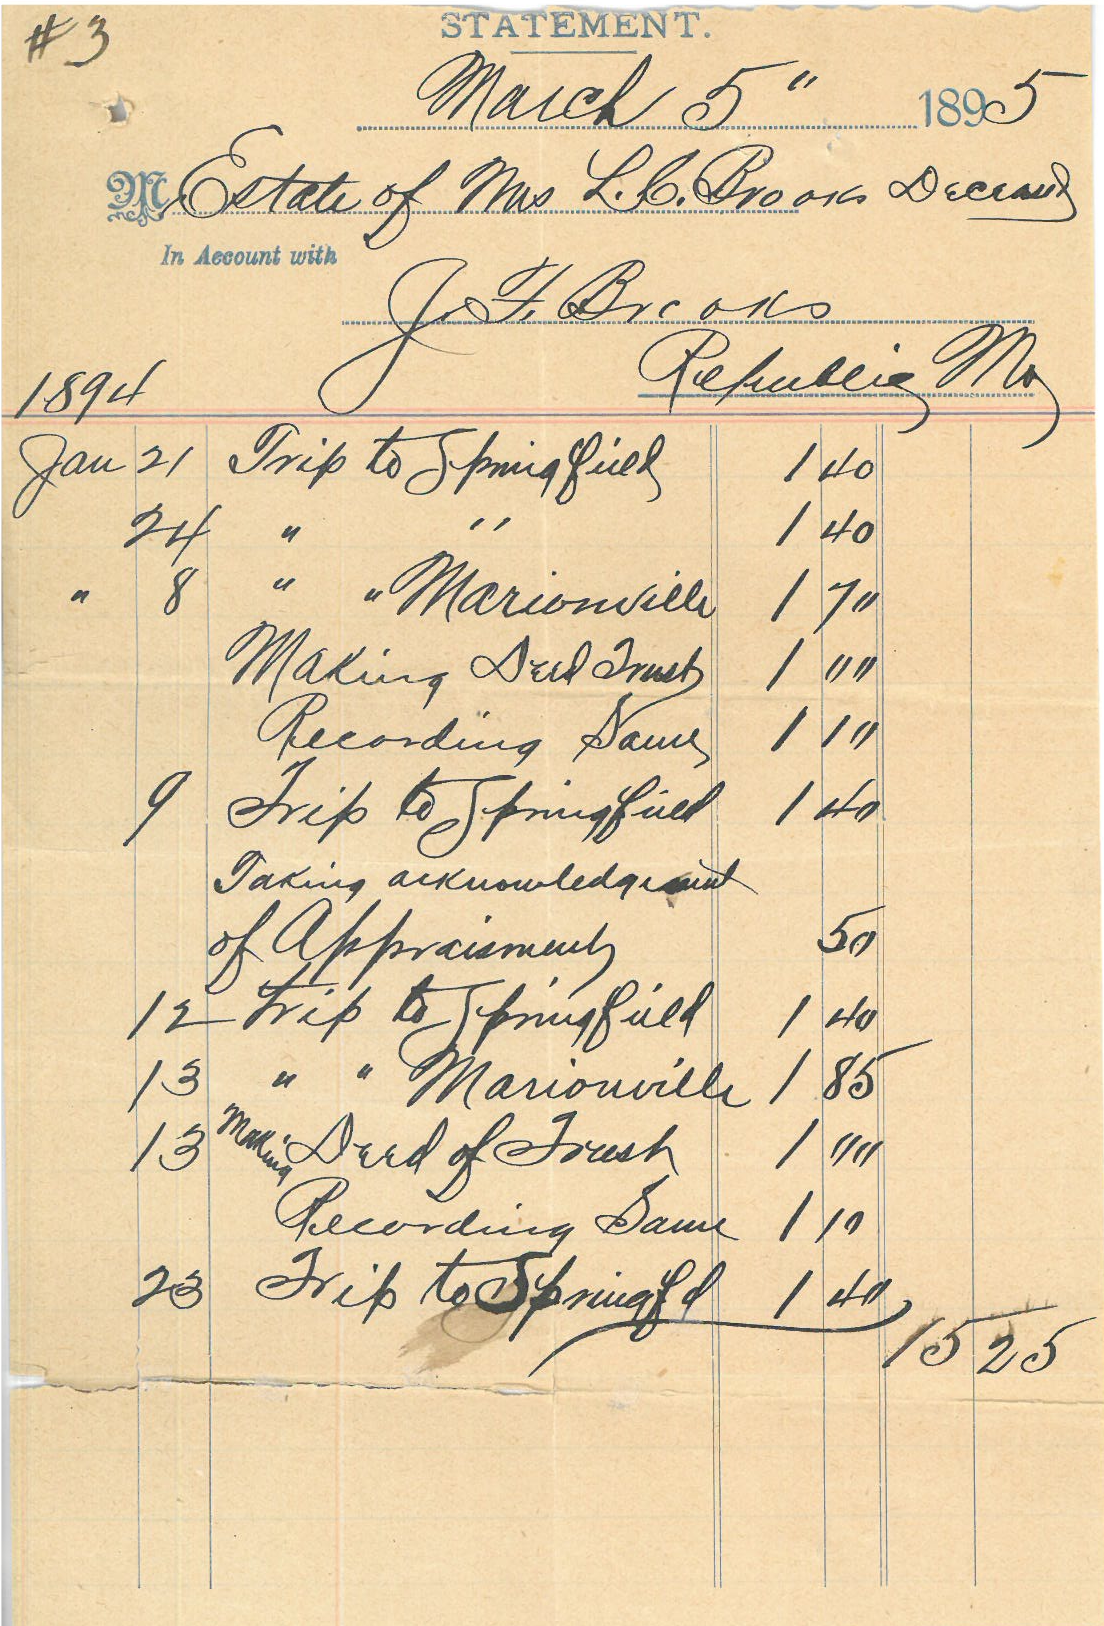 # 3
STATEMENT.
March 5" 1895
M Estate of Mrs L. C. Brooks Deceased
In Account with
J. F. Brooks
Republic Mo
1894
Jan 21 Trip to Springfield 1 40
24 " " 1 40
" 8 " " Marionville 1 7"
Making Deed Trust 1 ""
Recording Same 1 1"
9 Trip to Springfield 1 40
Taking acknowledgment
of Appraisment 50
12 Trip to Springfield 1 40
13 " " Marionville 1 85
13 Making Deed of Trust 1 ""
Recording Same 1 10
23 Trip to Springfd 1 40
15 25